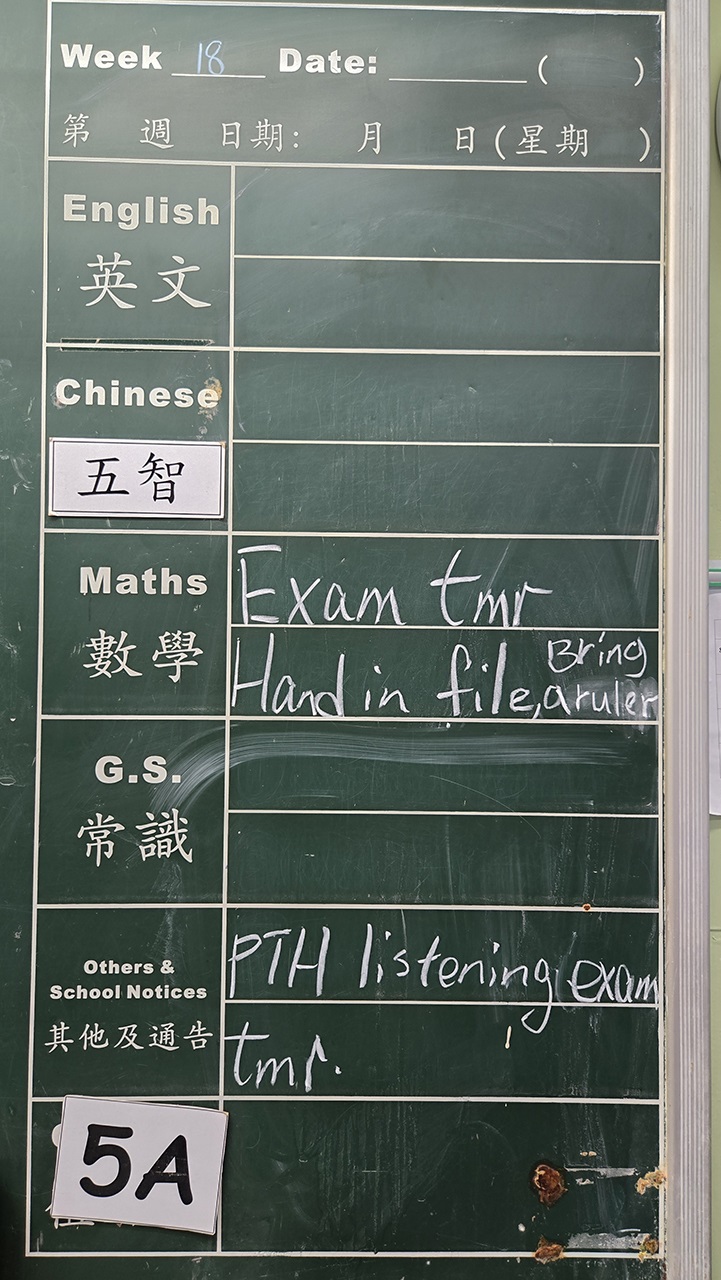 Week 18 Date: ( )
第 週 日期: 月 日(星期 )
English
英文
Chinese
五智
Maths
數學
Exam tmr
Hand in file, Bring a ruler
G.S.
常識
Others &
School Notices
其他及通告
PTH listening exam
tmr.
5A